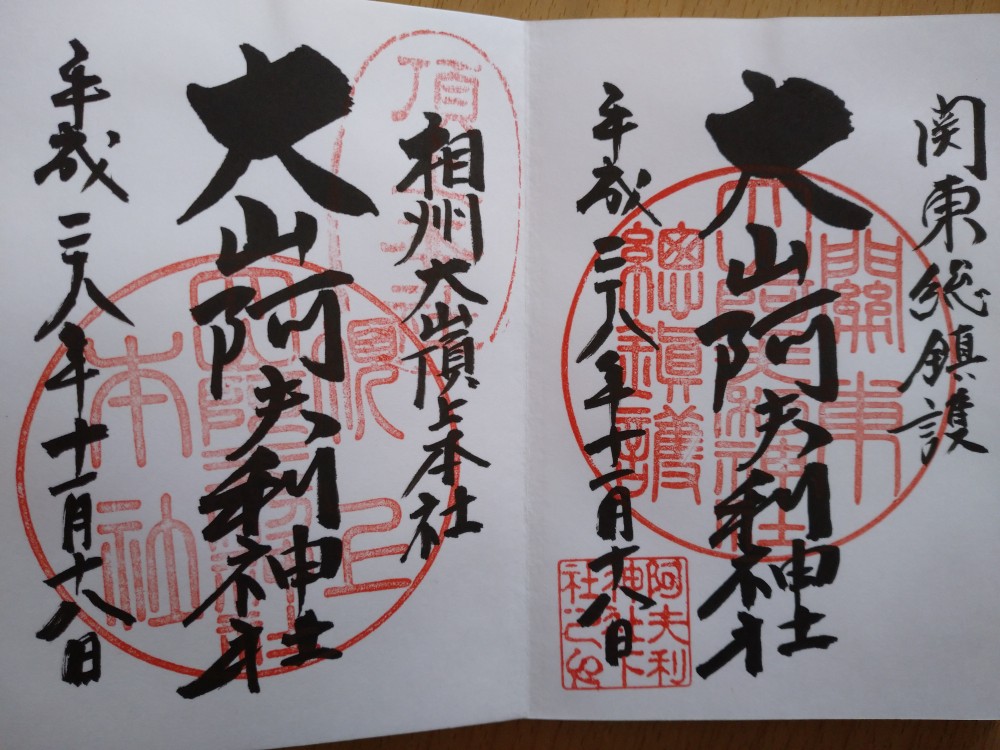 関東総鎮護
大山阿夫利神社
平成二十八年十一月十八日
關東
總鎮護
阿夫利
神社下
社之印
相州大山頂上本社
大山阿夫利神社
平成二十八年十一月十八日
頂上
本社